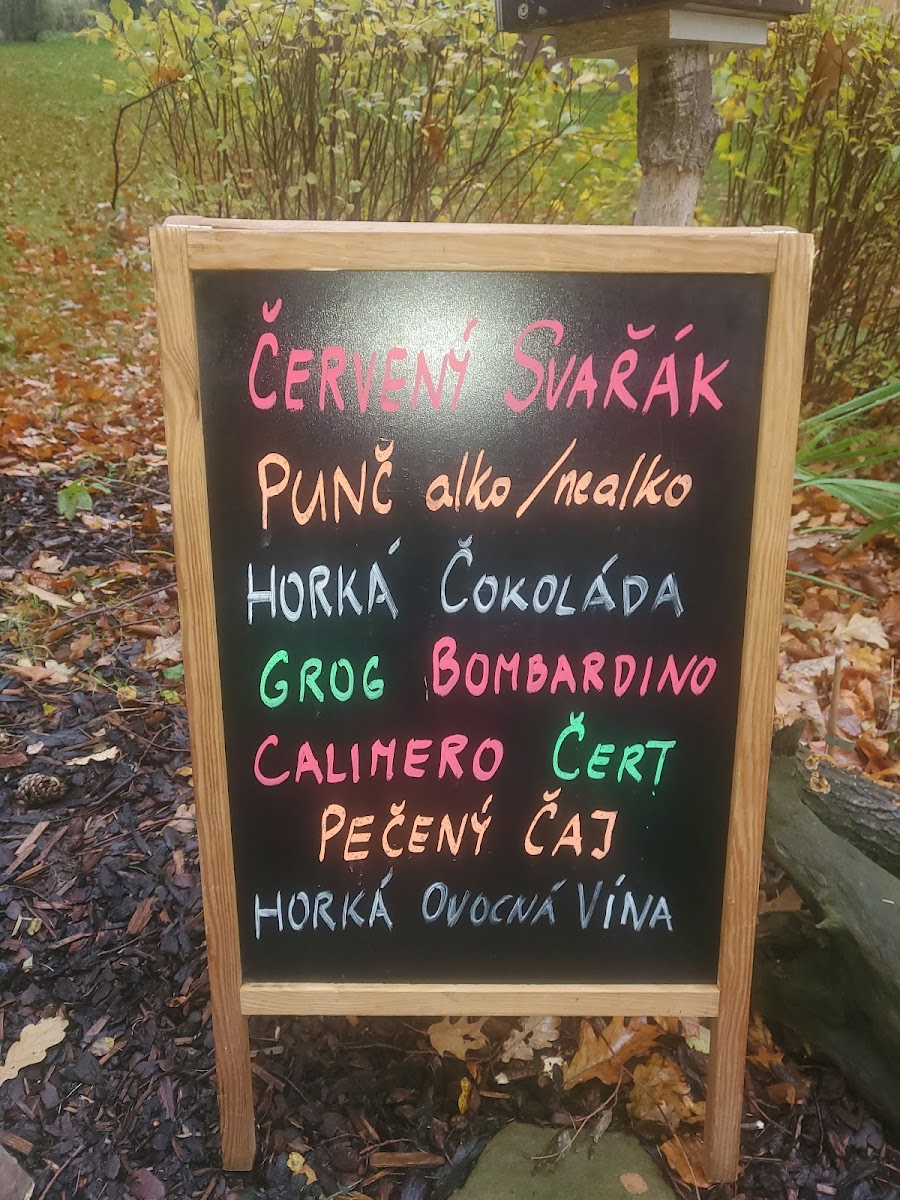 ČERVENÝ SVAŘÁK
PUNČ alko/nealko
HORKÁ ČOKOLÁDA
GROG BOMBARDINO
CALIMERO ČERT
PEČENÝ ČAJ
HORKÁ OVOCNÁ VÍNA